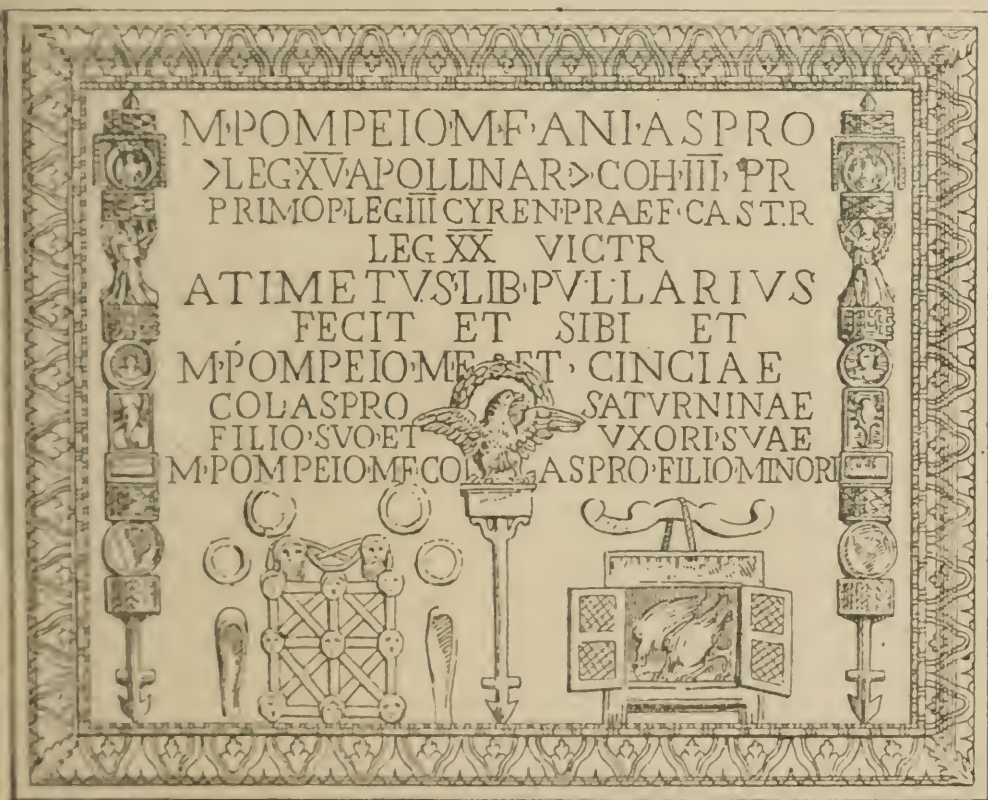 M·POMPEIO·M·F·ANI·ASPRO
>LEG·XV·APOLLINAR>·COH·III·PR
PRIMOP·LEG·III CYREN·PRAEF·CASTR
LEG XX VICTR
ATIMETVS·LIB·PVLLARIVS
FECIT ET SIBI ET
M·POMPEIO·M·F ET · CINCIAE
COL ASPRO SATVRNINAE
FILIO·SVO·ET VXORI·SVAE
M·POMPEIO·M·F·COL ASPRO·FILIO·MINORI